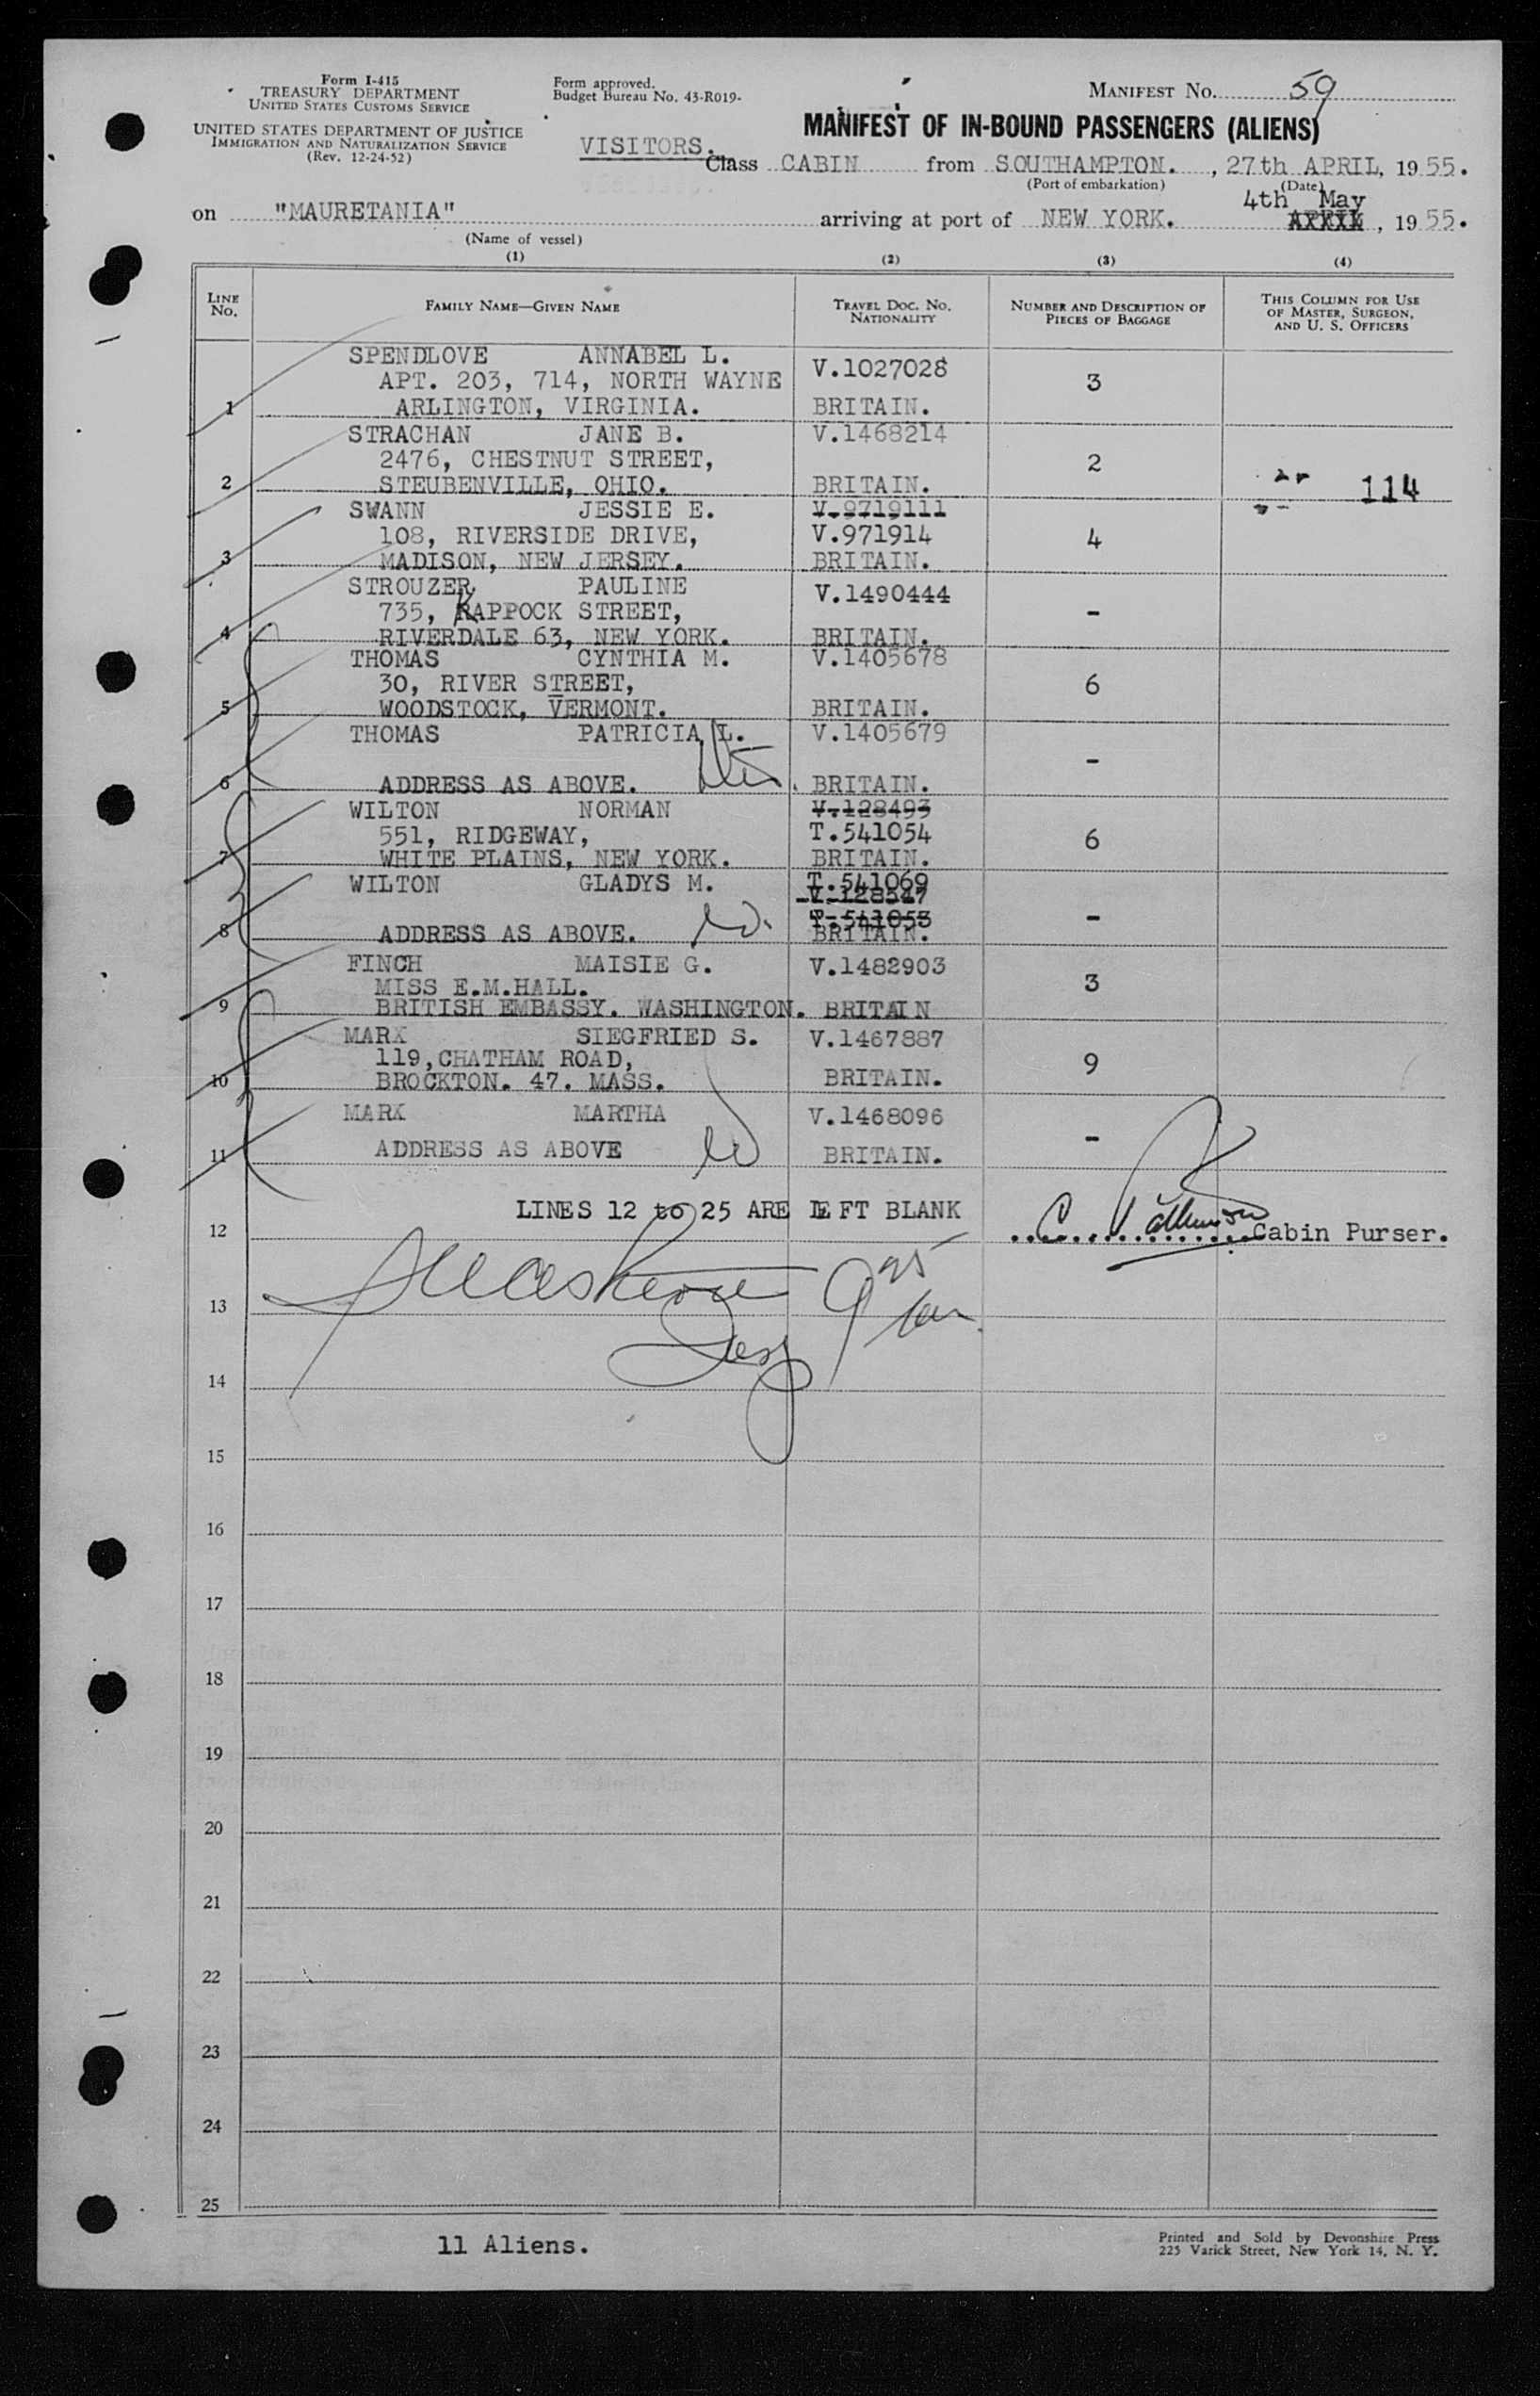 Form I-415
TREASURY DEPARTMENT
UNITED STATES CUSTOMS SERVICE
UNITED STATES DEPARTMENT OF JUSTICE
IMMIGRATION AND NATURALIZATION SERVICE
(Rev. 12-24-52)
Form approved.
Budget Bureau No. 43-R019-
MANIFEST No. 59
MANIFEST OF IN-BOUND PASSENGERS (ALIENS)
VISITORS.
Class CABIN from SOUTHAMPTON. , 27th APRIL, 1955.
(Port of embarkation) (Date)
4th May
on "MAURETANIA" arriving at port of NEW YORK. APRIL , 1955.
(Name of vessel)
(1) (2) (3) (4)
LINE No. FAMILY NAME—GIVEN NAME TRAVEL DOC. No. NATIONALITY NUMBER AND DESCRIPTION OF PIECES OF BAGGAGE THIS COLUMN FOR USE OF MASTER, SURGEON, AND U. S. OFFICERS
SPENDLOVE ANNABEL L. V.1027028
APT. 203, 714, NORTH WAYNE 3
1 ARLINGTON, VIRGINIA. BRITAIN.
STRACHAN JANE B. V.1468214
2476, CHESTNUT STREET, 2
2 STEUBENVILLE, OHIO. BRITAIN. 114
SWANN JESSIE E. V.9719111
108, RIVERSIDE DRIVE, V.971914 4
3 MADISON, NEW JERSEY. BRITAIN.
STROUZER PAULINE V.1490444
735, KAPPOCK STREET, -
4 RIVERDALE 63, NEW YORK. BRITAIN.
THOMAS CYNTHIA M. V.1405678
30, RIVER STREET, 6
5 WOODSTOCK, VERMONT. BRITAIN.
THOMAS PATRICIA L. V.1405679
-
6 ADDRESS AS ABOVE. BRITAIN.
WILTON NORMAN V.128493
551, RIDGEWAY, T.541054 6
7 WHITE PLAINS, NEW YORK. BRITAIN.
WILTON GLADYS M. T.541069
V.128547
T.541053 -
8 ADDRESS AS ABOVE. BRITAIN.
FINCH MAISIE G. V.1482903
MISS E.M.HALL. 3
9 BRITISH EMBASSY. WASHINGTON. BRITAIN
MARX SIEGFRIED S. V.1467887
119,CHATHAM ROAD, 9
10 BROCKTON. 47. MASS. BRITAIN.
MARX MARTHA V.1468096
-
11 ADDRESS AS ABOVE BRITAIN.
LINES 12 to 25 ARE LEFT BLANK
12 Cabin Purser.
13
14
15
16
17
18
19
20
21
22
23
24
25
11 Aliens.
Printed and Sold by Devonshire Press
225 Varick Street, New York 14, N. Y.